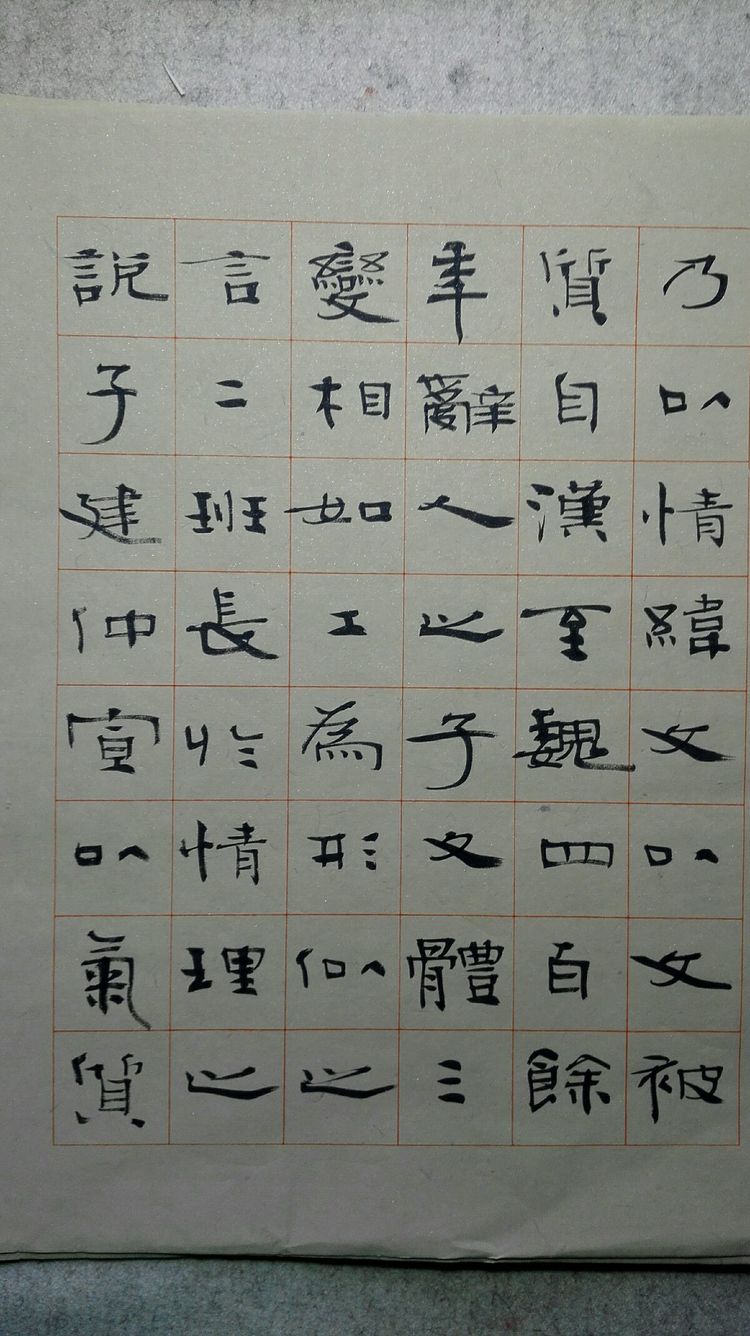 乃以情緯文以文被
質自漢至魏四百餘
年辭人之子文體三
變相如工為形似之
言二班長於情理之
說子建仲宣以氣質